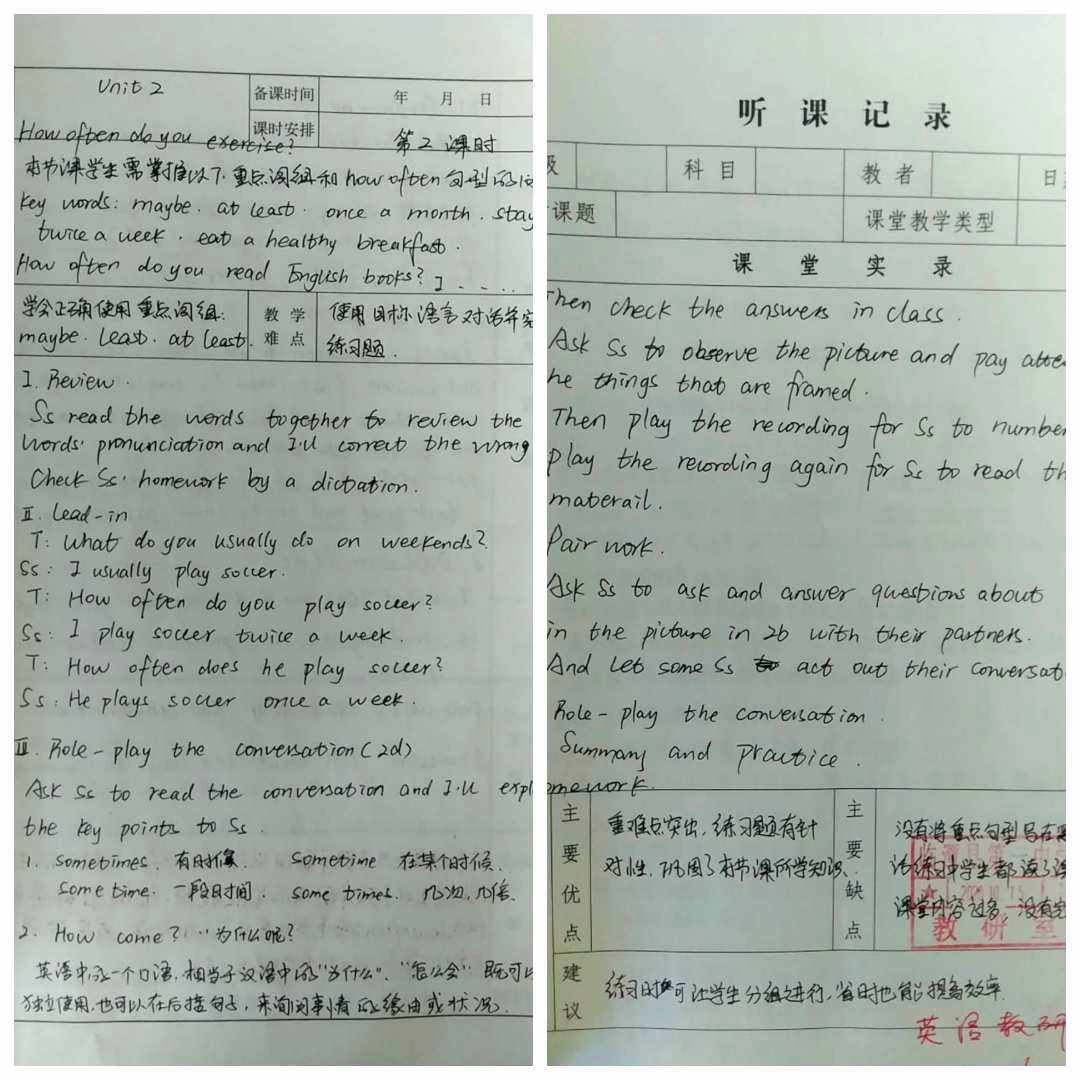 Unit 2
备课时间
年 月 日
How often do you exercise?
课时安排
第2课时
本节课学生需掌握以下重点词组和how often句型的
Key words: maybe. at least. once a month. stay
twice a week. eat a healthy breakfast.
How often do you read English books? I ....
学会正确使用重点词组.
maybe. least. at least.
教学
难点
使用目标语言对话并完
练习题.
I. Review.
Ss read the words together to review the
words' pronunciation and I'll correct the wrong
Check Ss' homework by a dictation.
II. Lead-in
T: What do you usually do on weekends?
Ss: I usually play soccer.
T: How often do you play soccer?
Ss: I play soccer twice a week.
T: How often does he play soccer?
Ss: He plays soccer once a week.
III. Role-play the conversation (2d)
Ask Ss to read the conversation and I'll expl
the key points to Ss.
1. sometimes. 有时候 sometime 在某个时候.
some time. 一段时间. some times. 几次,几倍.
2. How come? "为什么呢?
英语中的一个口语,相当于汉语中的"为什么"、"怎么会"既可以
独立使用,也可以在后接句子,来询问事情的缘由或状况.
听课记录
级
科目
教者
日
课题
课堂教学类型
课堂实录
Then check the answers in class.
Ask Ss to observe the picture and pay atte
he things that are framed.
Then play the recording for Ss to number
Play the recording again for Ss to read th
materail.
Pair work.
Ask Ss to ask and answer questions about
in the picture in 2b with their partners.
And let some Ss act out their conversat
Role-play the conversation.
Summary and practice.
omework.
主要优点
重难点突出,练习题有针
对性,巩固了本节课所学知识.
主要缺点
没有将重点句型写在黑
练习中学生都
课堂内容过多,没有完
2021.10.15
教研室
建议
练习时可让学生分组进行,省时也能提高效率.
英语教研